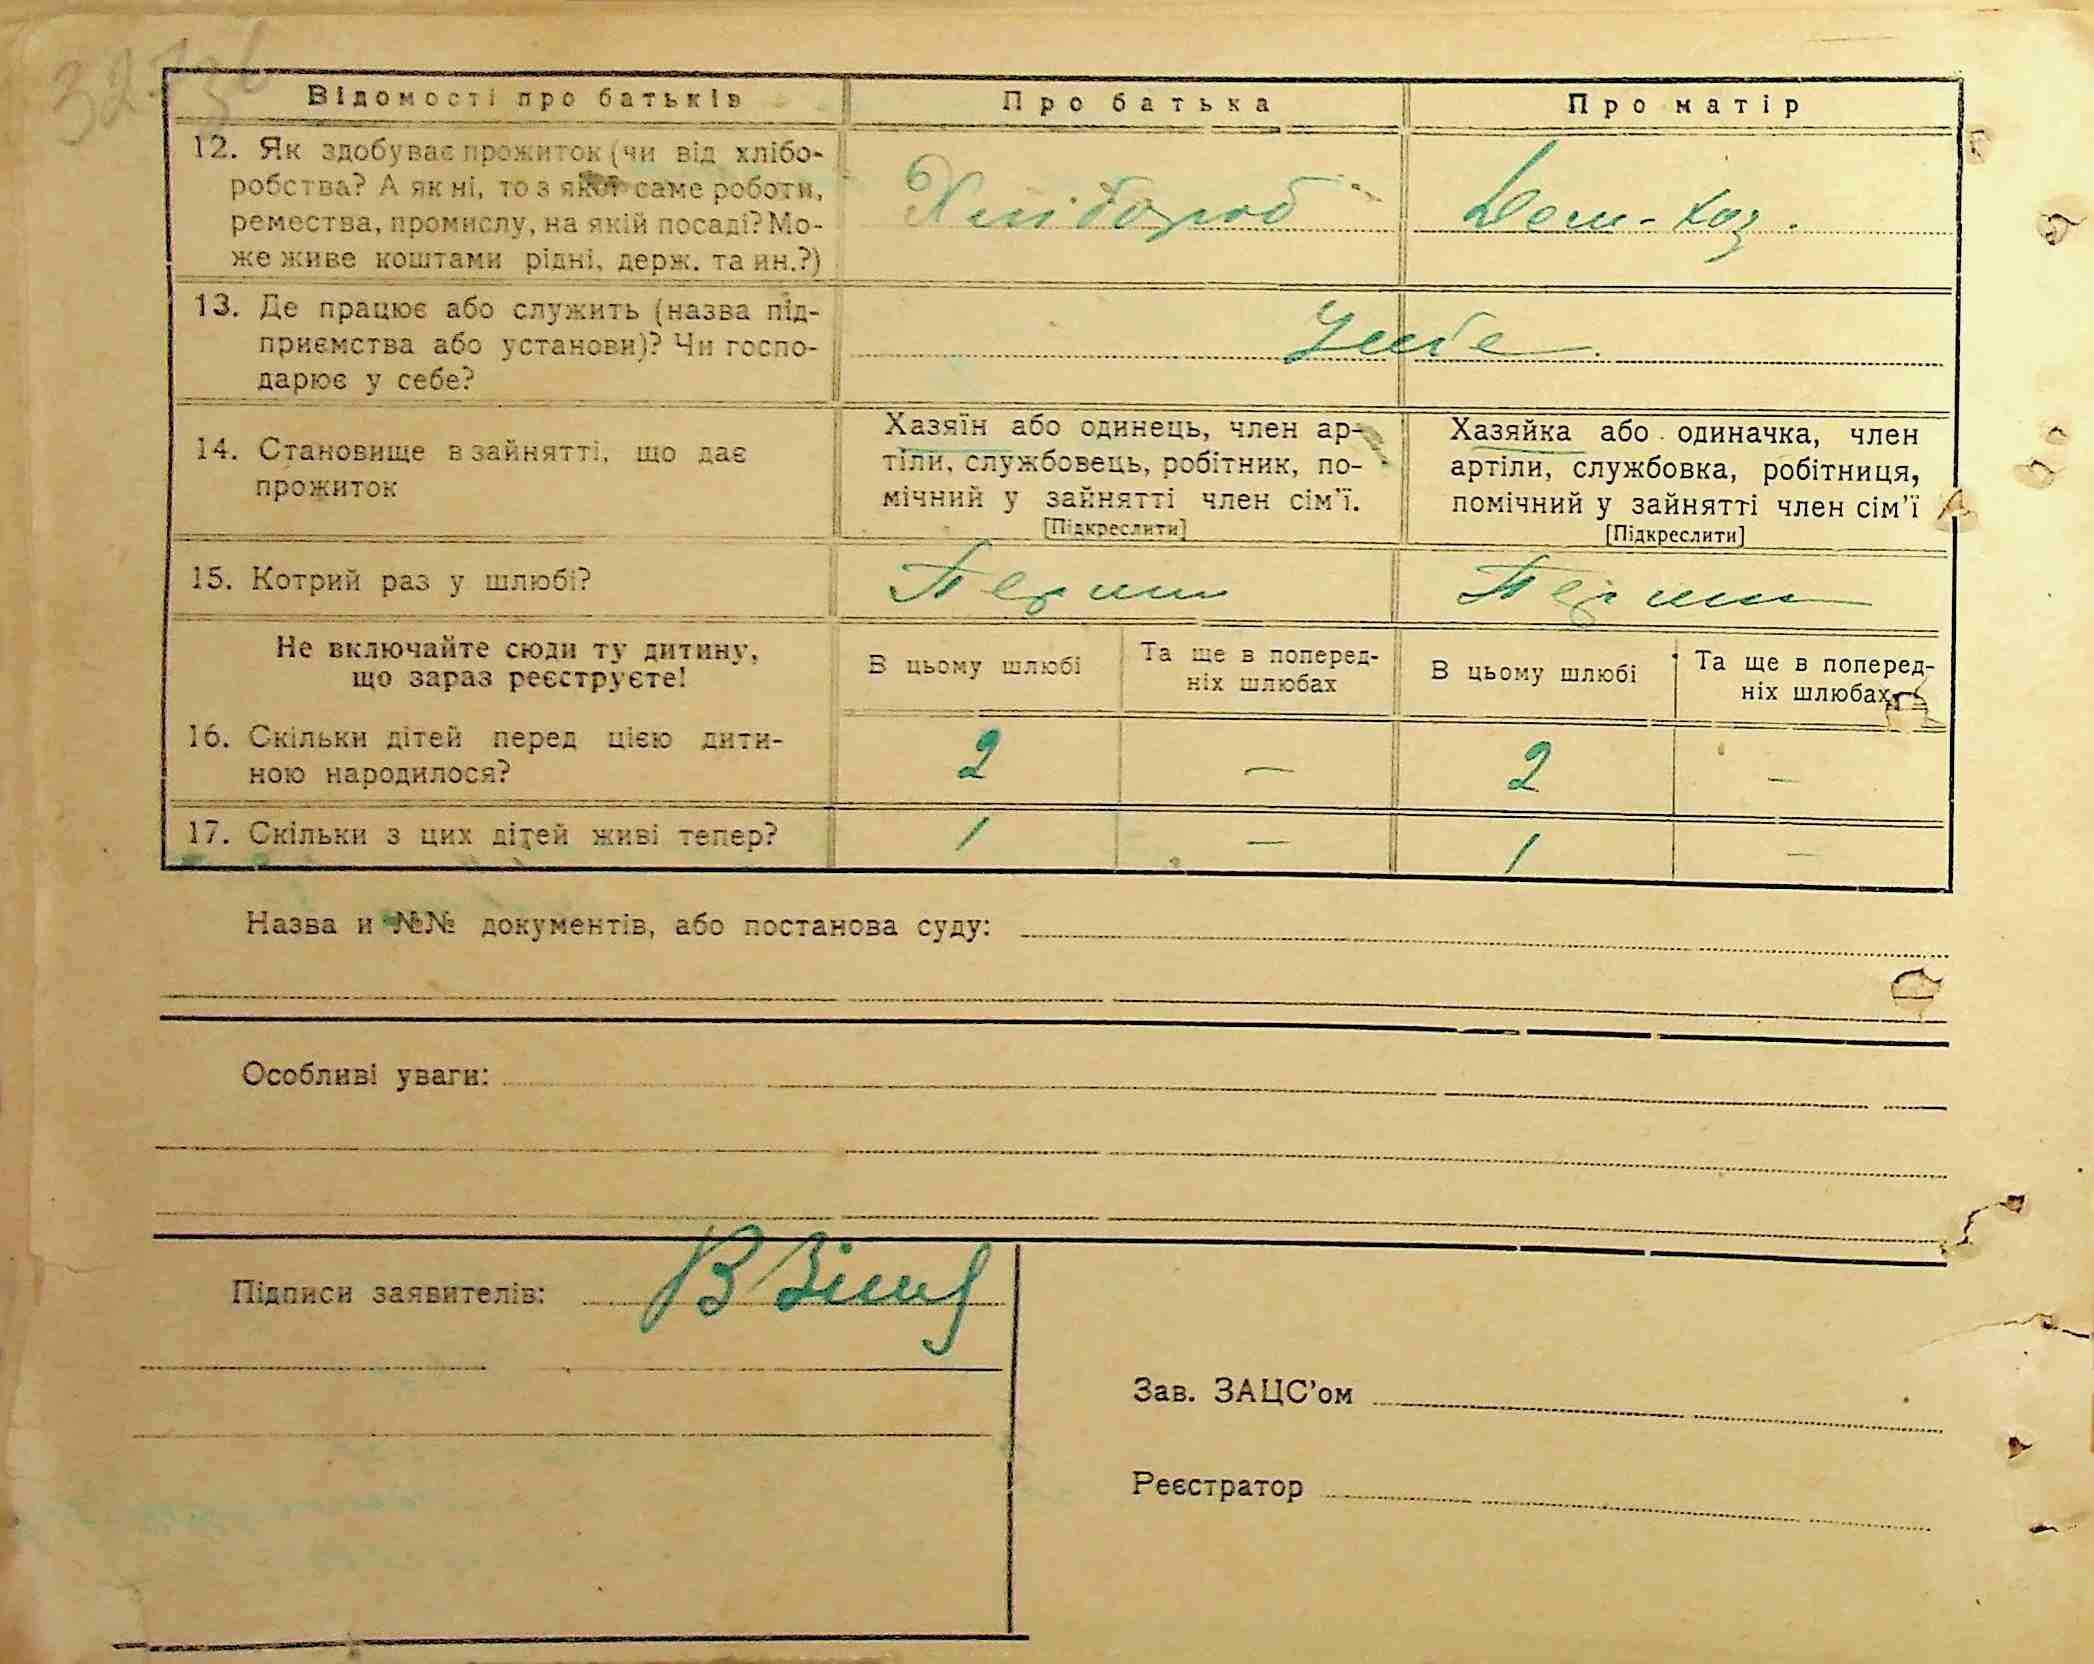 Відомості про батьків
Про батька
Про матір
12. Як здобуває прожиток (чи від хлібо-
робства? А як ні, то з якої саме роботи,
ремества, промислу, на якій посаді? Мо-
же живе коштами рідні, держ. та ин.?)
Хлібороб
Дом-хоз.
13. Де працює або служить (назва під-
приємства або установи)? Чи госпо-
дарює у себе?
У себе
14. Становище в зайнятті, що дає
прожиток
Хазяїн або одинець, член ар-
тіли, службовець, робітник, по-
мічний у зайнятті член сім'ї.
[Підкреслити]
Хазяйка або одиначка, член
артіли, службовка, робітниця,
помічний у зайнятті член сім'ї
[Підкреслити]
15. Котрий раз у шлюбі?
Перший
Перший
Не включайте сюди ту дитину,
що зараз реєструєте!
В цьому шлюбі
Та ще в поперед-
ніх шлюбах
В цьому шлюбі
Та ще в поперед-
ніх шлюбах
16. Скільки дітей перед цією дити-
ною народилося?
2
—
2
—
17. Скільки з цих дітей живі тепер?
1
—
1
—
Назва и №№ документів, або постанова суду:
Особливі уваги:
Підписи заявителів:
Зав. ЗАЦС'ом
Реєстратор